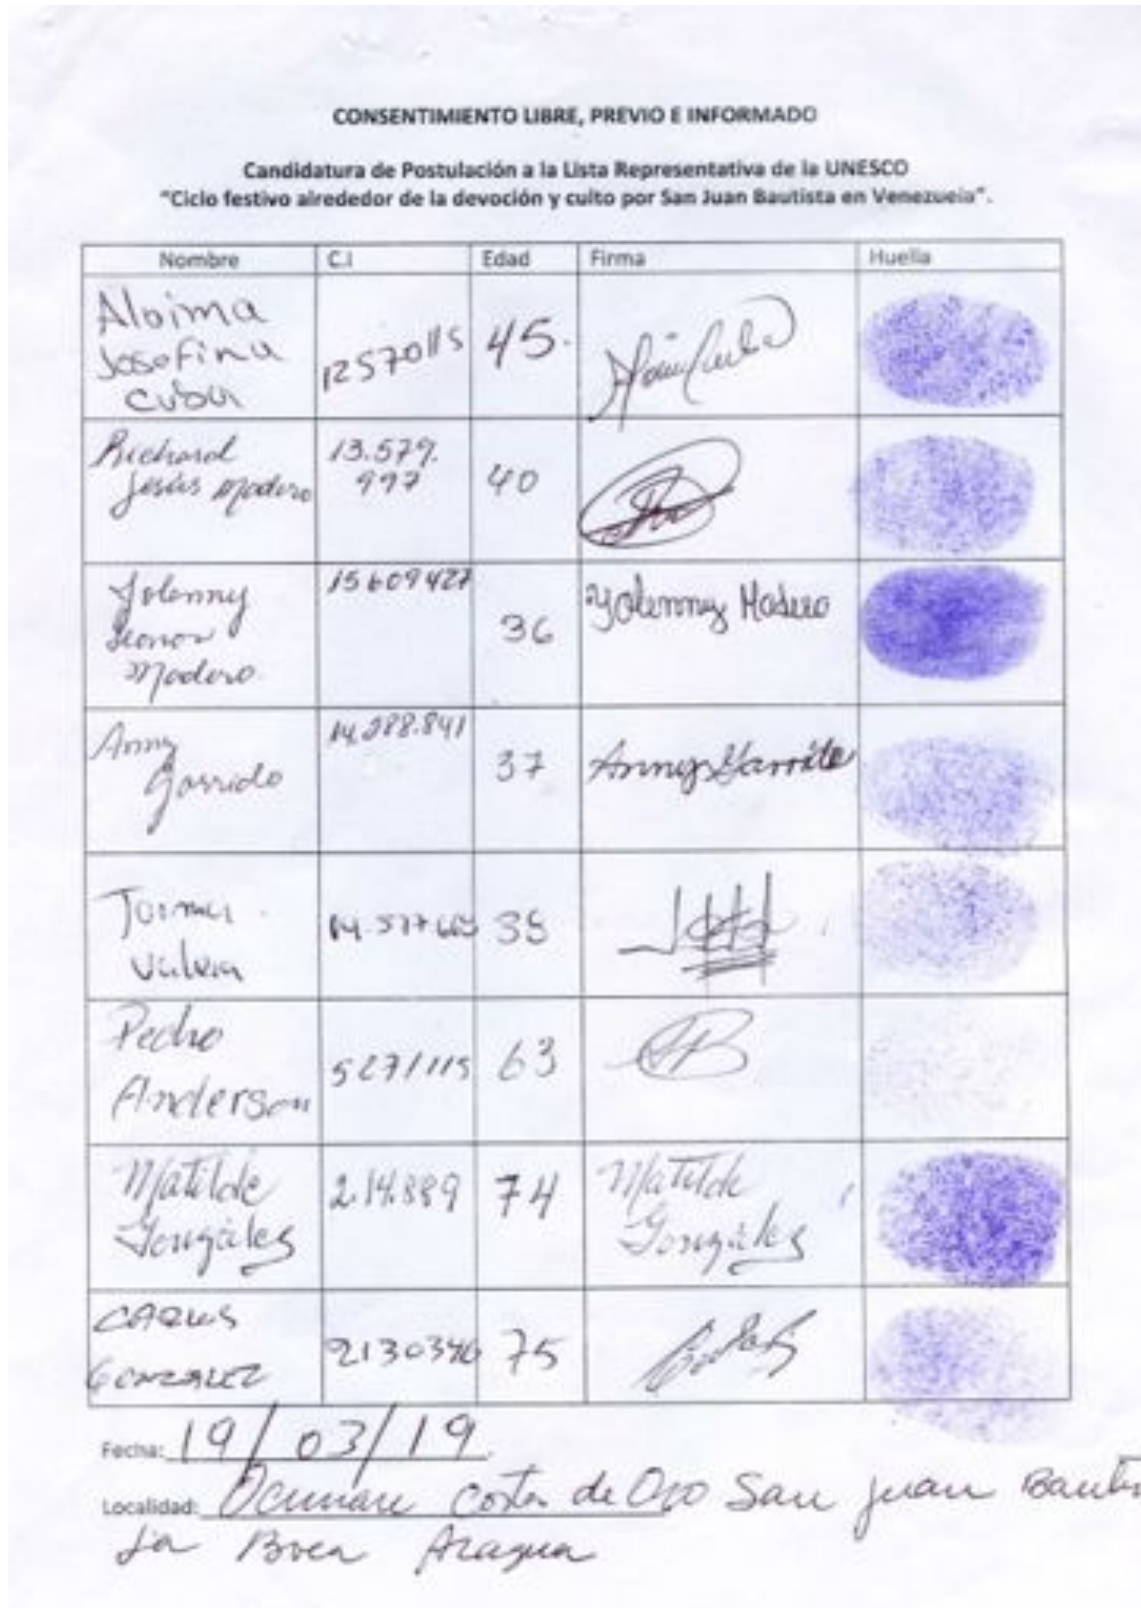 CONSENTIMIENTO LIBRE, PREVIO E INFORMADO
Candidatura de Postulación a la Lista Representativa de la UNESCO
"Ciclo festivo alrededor de la devoción y culto por San Juan Bautista en Venezuela".
Nombre C.I Edad Firma Huella
Josefina
12570115 45.
Richard
Jesús Madero
13.579.
997
40
Yolenny
Leonor
Madero.
15609427
36
Yolenny Madero
Anny
Garrido
14.288.841
37
Anny Garrido
Valera
35
Pedro
Anderson
5271115 63
Matilde
Gonzáles
2.14.889 74
Matilde
Gonzáles
CARLOS
GONZALEZ
2130346 75
Fecha: 19/03/19
Localidad: Ocumare Costa de Oro San Juan
La Boca Aragua